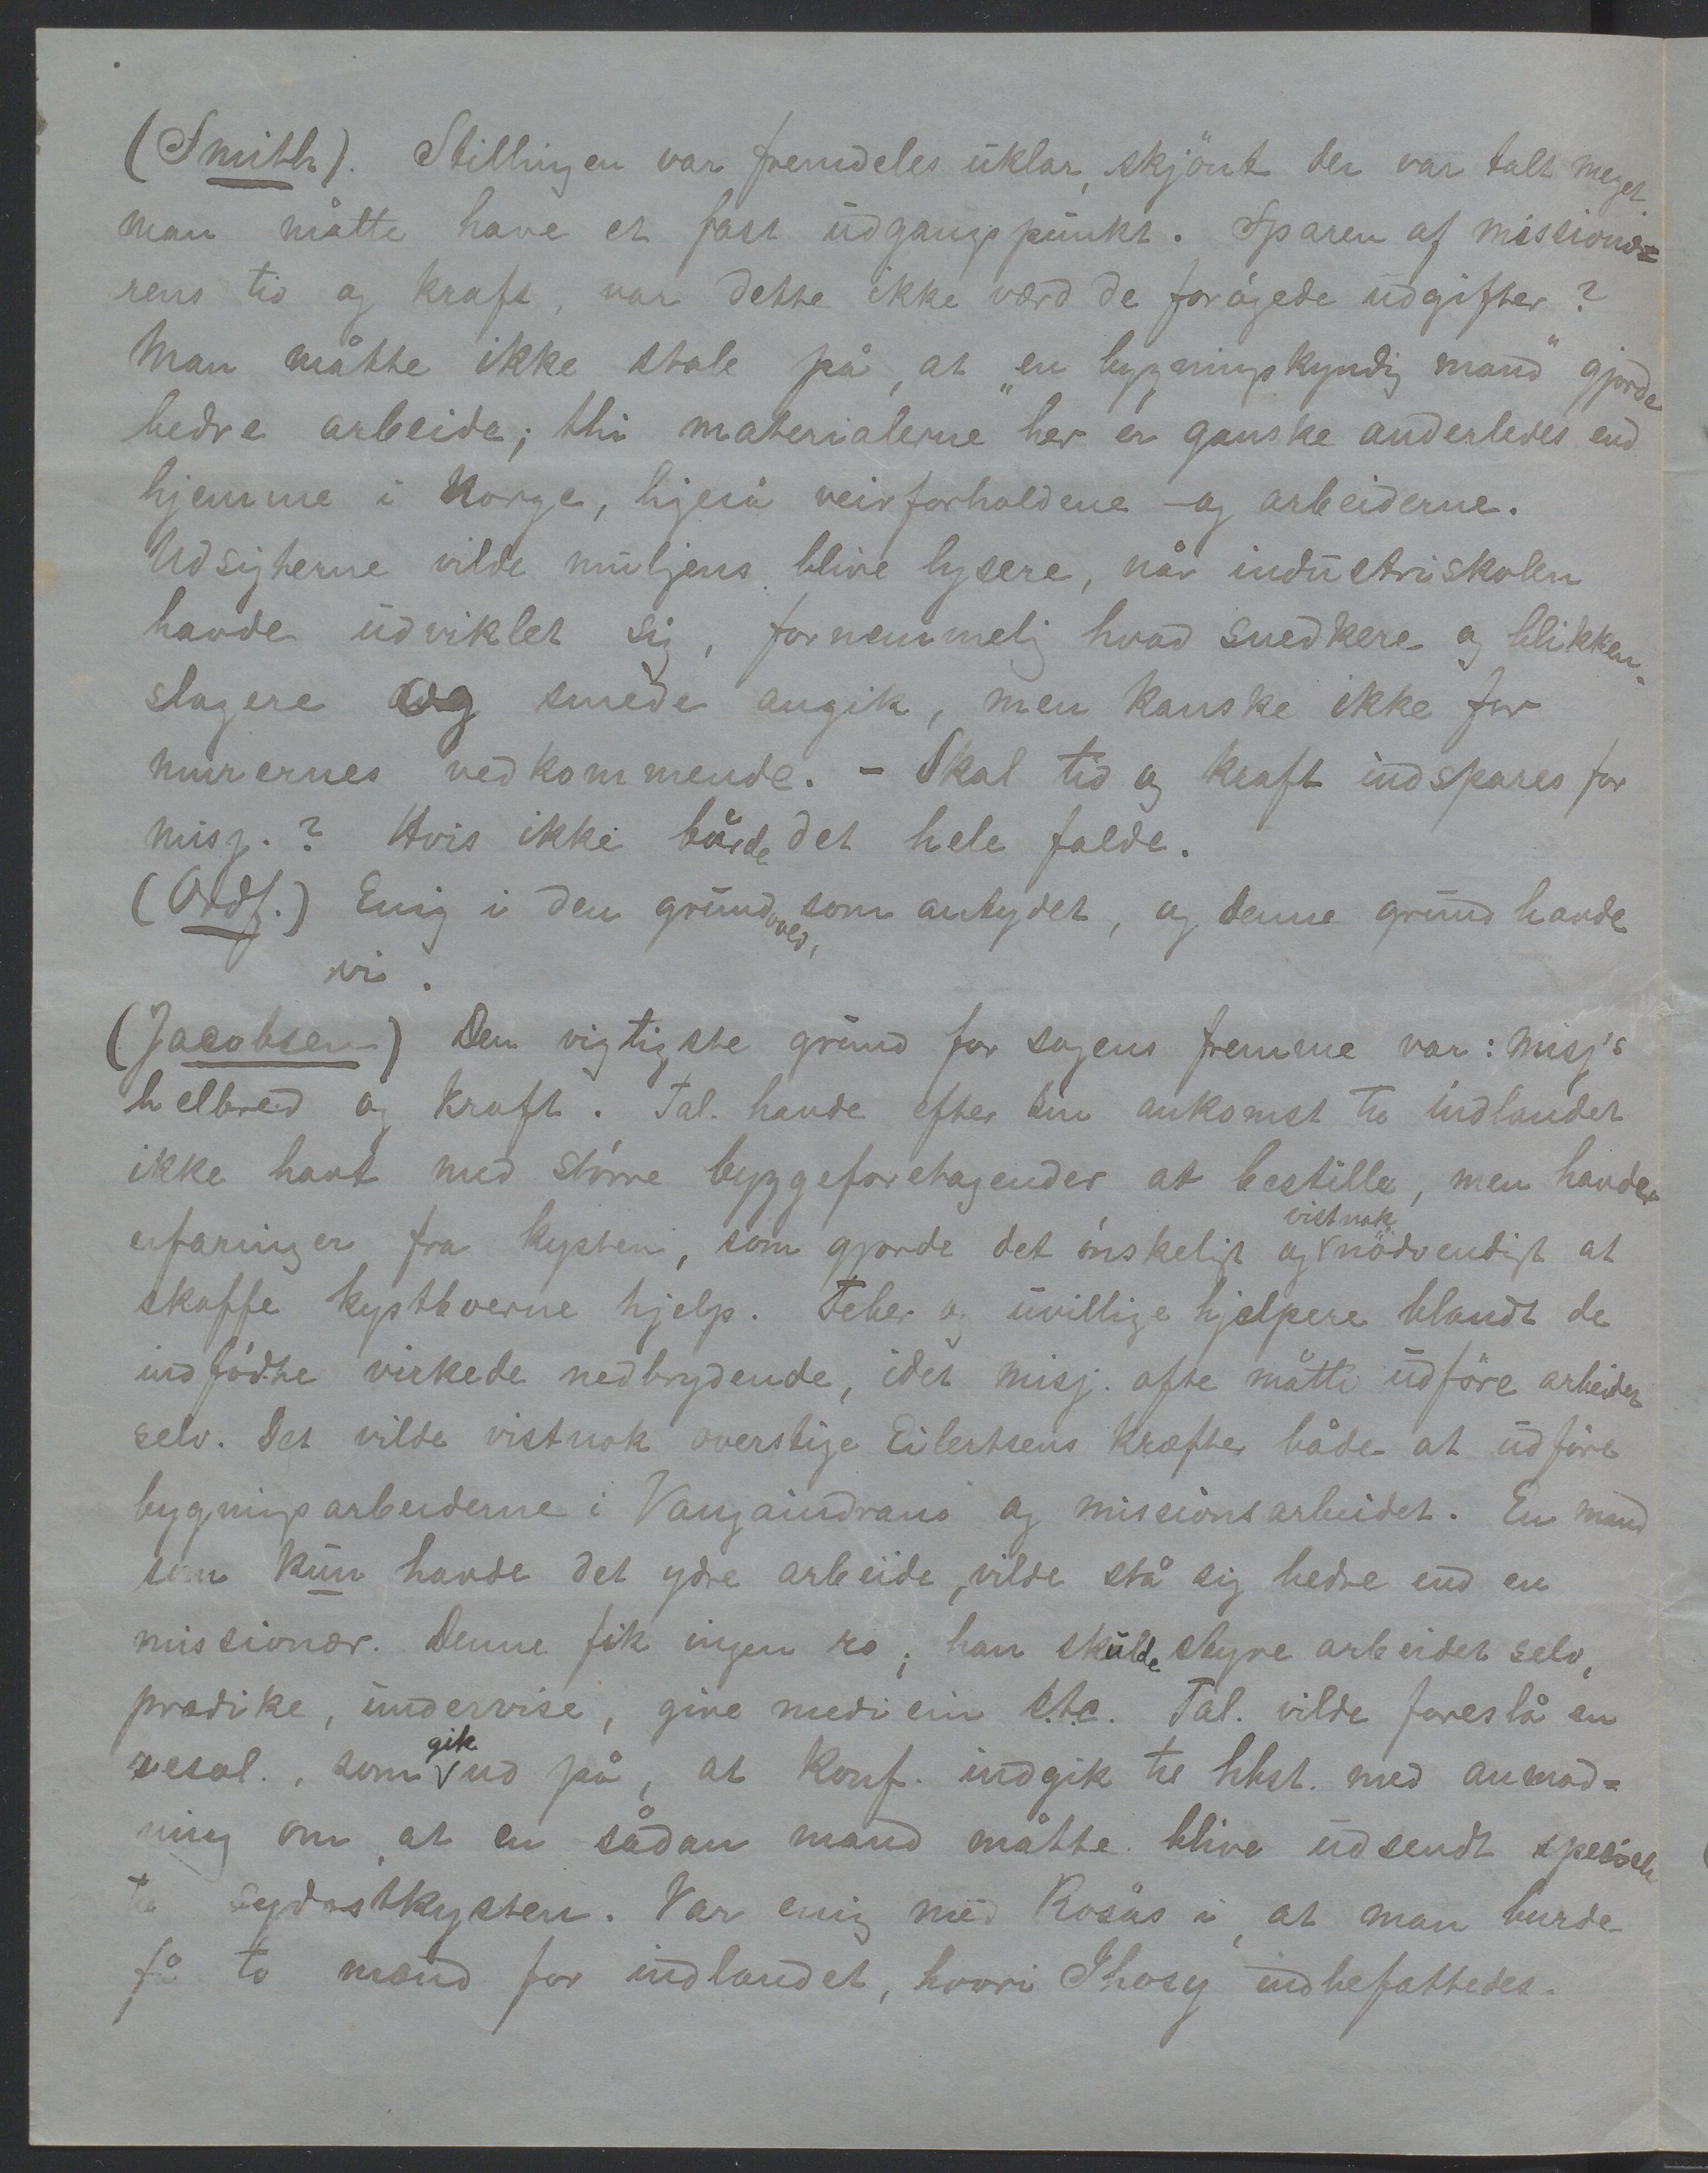 (Smith). Stillingen var fremdeles uklar, skjönt der var talt meget.
man måtte have et fast udgangspunkt. Sparen af missionæ=
rens tid og kraft, var dette ikke værd de forøgede udgifter?
Man måtte ikke stole på, at „en bygningskyndig mand" gjorde
bedre arbeide; thi materialerne her er ganske anderledes end
hjemme i Norge, ligeså veirforholdene – og arbeiderne.
Udsigterne vilde muligens blive lysere, når industriskolen
havde udviklet sig, fornemmelig hvad snedkere og blikken-
slagere og smede angik, men kanske ikke for
murernes vedkommende. – Skal tid og kraft indspares for
misj.? Hvis ikke burde det hele falde.
(Ordf.) Enig i den grundvold, som antydet, og denne grund havde
vi.
(Jacobsen) Den vigtigste grund for sagens fremme var: misj's
helbred og kraft. Tal. havde efter sin ankomst til indlandet
ikke havt med större byggeforetagender at bestille, men havde
erfaringer fra kysten, som gjorde det ónskeligt og vistnok nödvendigt at
skaffe kystboerne hjelp. Feber og uvillige hjelpere blandt de
indfödte virkede nedbrydende, idet misj. ofte måtte udföre arbeidet
selv. Det vilde vistnok overstige Eilertsens kræfter både at udföre
bygningsarbeiderne i Vangaindrano og missionsarbeidet. En mand
som kun havde det ydre arbeide, vilde stå sig bedre end en
missionær. Denne fik ingen ro; han skulde styre arbeidet selv,
prædike, undervise, give medicin etc. Tal. vilde foreslå en
resol., som gik ud på, at konf. indgik til hbst. med anmod=
ning om, at en sådan mand måtte blive udsendt specielt
til sydostkysten. Var enig med Rosås i, at man burde
få to mænd for indlandet, hvori Ihosy indbefattedes.